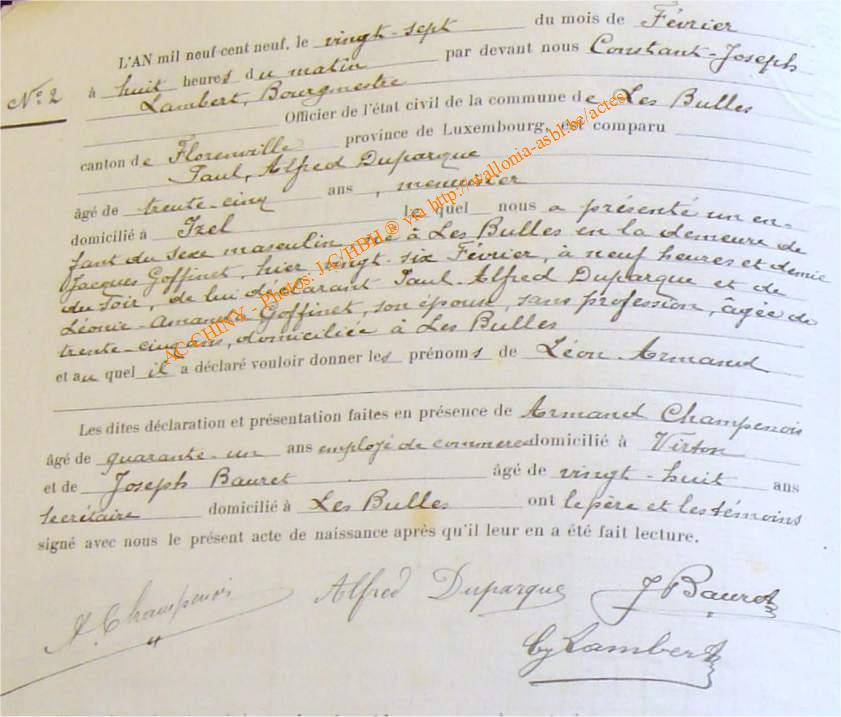 L'AN mil neuf cent neuf, le vingt-sept du mois de Février
N° 2 à huit heures du matin par devant nous Constant-Joseph
Lambert, Bourgmestre
Officier de l'état civil de la commune de Les Bulles
canton de Florenville province de Luxembourg, est comparu
Paul, Alfred Duparque
âgé de trente-cinq ans, menuisier
domicilié à Izel le quel nous a présenté un en-
fant du sexe masculin, né à Les Bulles en la demeure de
Jacques Goffinet, hier vingt-six Février, à neuf heures et demie
du soir, de lui déclarant Paul-Alfred Duparque et de
Léonie-Amanda Goffinet, son épouse, sans profession, âgée de
trente-cinq ans, domiciliée à Les Bulles
et au quel il a déclaré vouloir donner les prénoms de Léon-Armand
Les dites déclaration et présentation faites en présence de Armand Champenois
âgé de quarante-un ans employé de commerce domicilié à Virton
et de Joseph Bauret âgé de vingt-huit ans
secrétaire domicilié à Les Bulles ont le père et les témoins
signé avec nous le présent acte de naissance après qu'il leur en a été fait lecture.
A. Champenois Alfred Duparque J Bauret
CJ Lambert
AC CHINY - Photos: J.C/HBH ® via http://wallonia-asbl.be/actes/